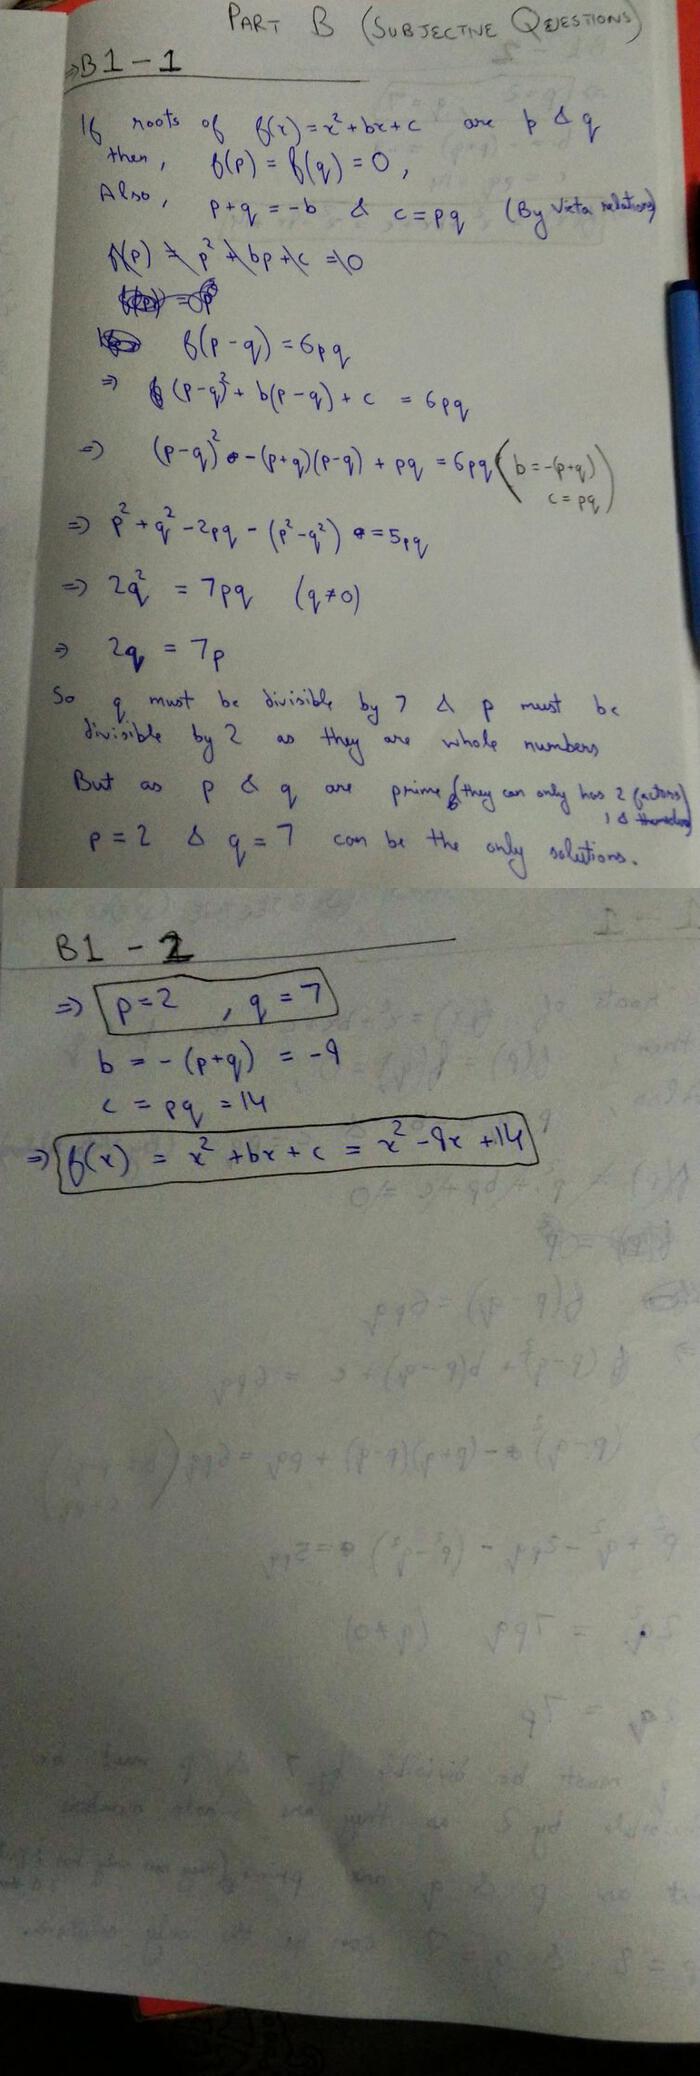 PART B (SUBJECTIVE QUESTIONS)
⇒B1-1
If roots of f(x) = x² + bx + c are p & q
then, f(p) = f(q) = 0,
Also, p+q = -b & c = pq (By Vieta relations)
f(p) = p² + bp + c = 0
f(p-q) = 6pq
⇒ (p-q)² + b(p-q) + c = 6pq
⇒ (p-q)² - (p+q)(p-q) + pq = 6pq (b = -(p+q)
c = pq)
⇒ p² + q² - 2pq - (p² - q²) = 5pq
⇒ 2q² = 7pq (q≠0)
⇒ 2q = 7p
So q must be divisible by 7 & p must be
divisible by 2 as they are whole numbers
But as p & q are prime (they can only has 2 factors)
1 &
p = 2 & q = 7 can be the only solutions.
B1 - 2
⇒ p=2 , q=7
b = -(p+q) = -9
c = pq = 14
⇒ f(x) = x² + bx + c = x² - 9x + 14